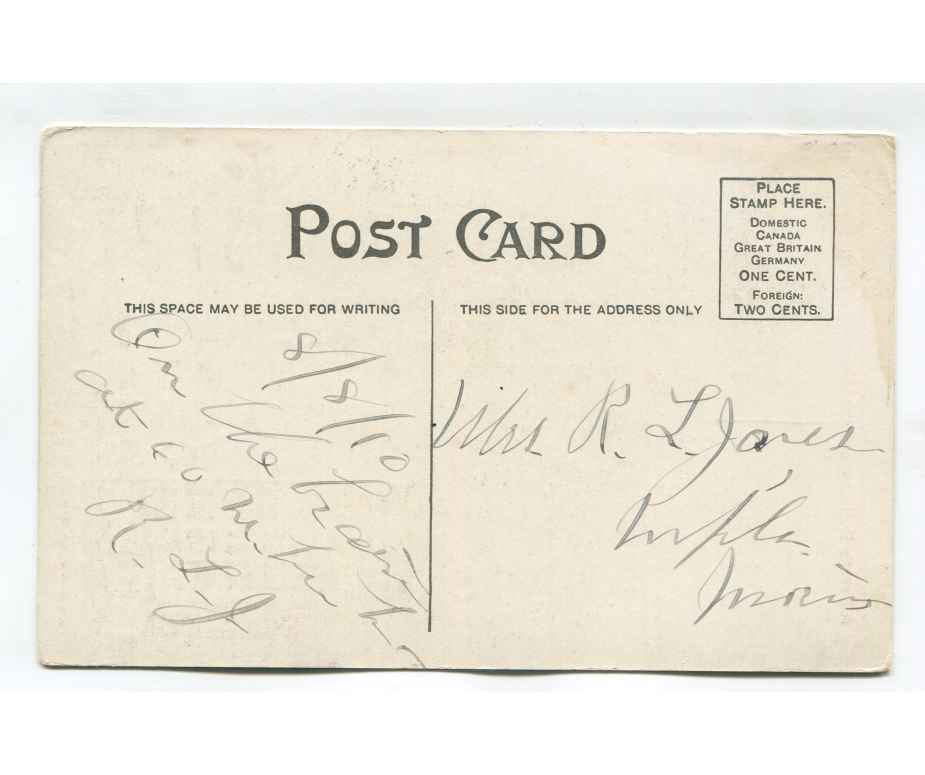 POST CARD
PLACE
STAMP HERE.
DOMESTIC
CANADA
GREAT BRITAIN
GERMANY
ONE CENT.
FOREIGN:
TWO CENTS.
THIS SPACE MAY BE USED FOR WRITING
THIS SIDE FOR THE ADDRESS ONLY
8/8/10
On the train
at 60 m. per
R. L. J
Mrs R. L. Jones